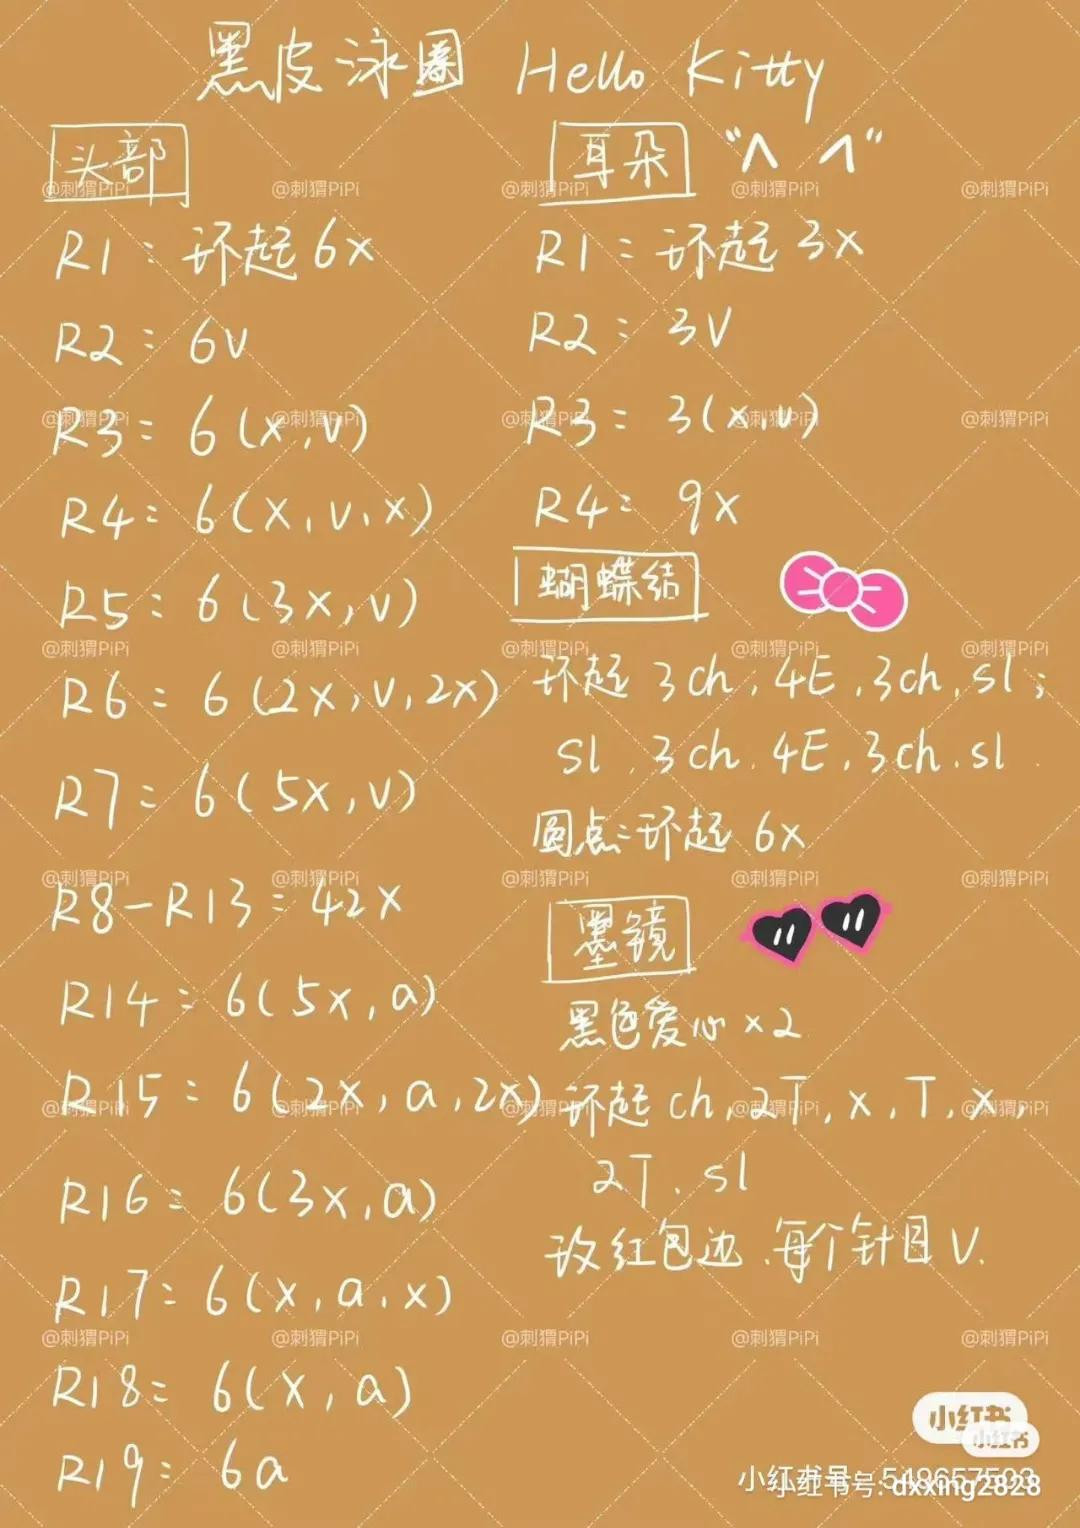 黑皮泳圈 Hello Kitty
头部
R1：环起6x
R2：6v
R3：6(x,v)
R4：6(x,v,x)
R5：6(3x,v)
R6：6(2x,v,2x)
R7：6(5x,v)
R8-R13：42x
R14：6(5x,a)
R15：6(2x,a,2x)
R16：6(3x,a)
R17：6(x,a,x)
R18：6(x,a)
R19：6a
耳朵
R1：环起3x
R2：3v
R3：3(x,v)
R4：9x
蝴蝶结
环起3ch,4E,3ch,sl;
sl,3ch,4E,3ch,sl.
圆点：环起6x
墨镜
黑色爱心x2
环起ch,2T,x,T,x,
2T,sl
玫红包边,每个针目V.
@刺猬PiPi
小红书
小红书
小红书号:
小红书号: dxxing2828